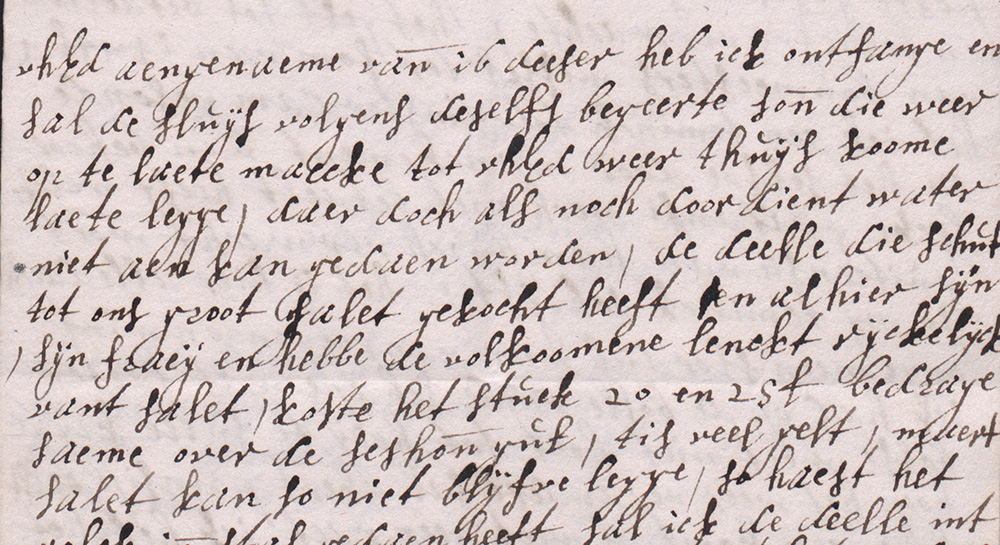 uhEd aengenaeme van̄ 16 deeser heb ick ontfange en
sal de sluijs volgens deselfs begeerte son̄ die weer
op te laete maecke tot uhEd weer thuijs koome
laete legge, daer doch als noch door dient water
niet aen kan gedaen worden, de deelle die schut
tot ons groot salet gekocht heeft en alhier sijn
, sijn fraeij en hebbe de volkoomene lenckt rijckelijck
vant salet, koste het stuck 20 en 25 st bedrage
saeme over de seshon̄ gul, tis veel gelt, maert
salet kan so niet blijfve legge, so haest het
volck gedaen heeft sal ick de deelle int